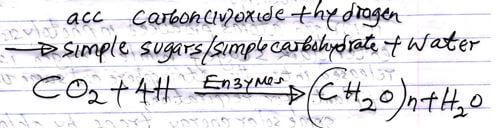 acc carbon(iv)oxide + hydrogen
→ simple sugars/simple carbohydrate + water
CO₂ + 4H Enzymes → (CH₂O)n + H₂O